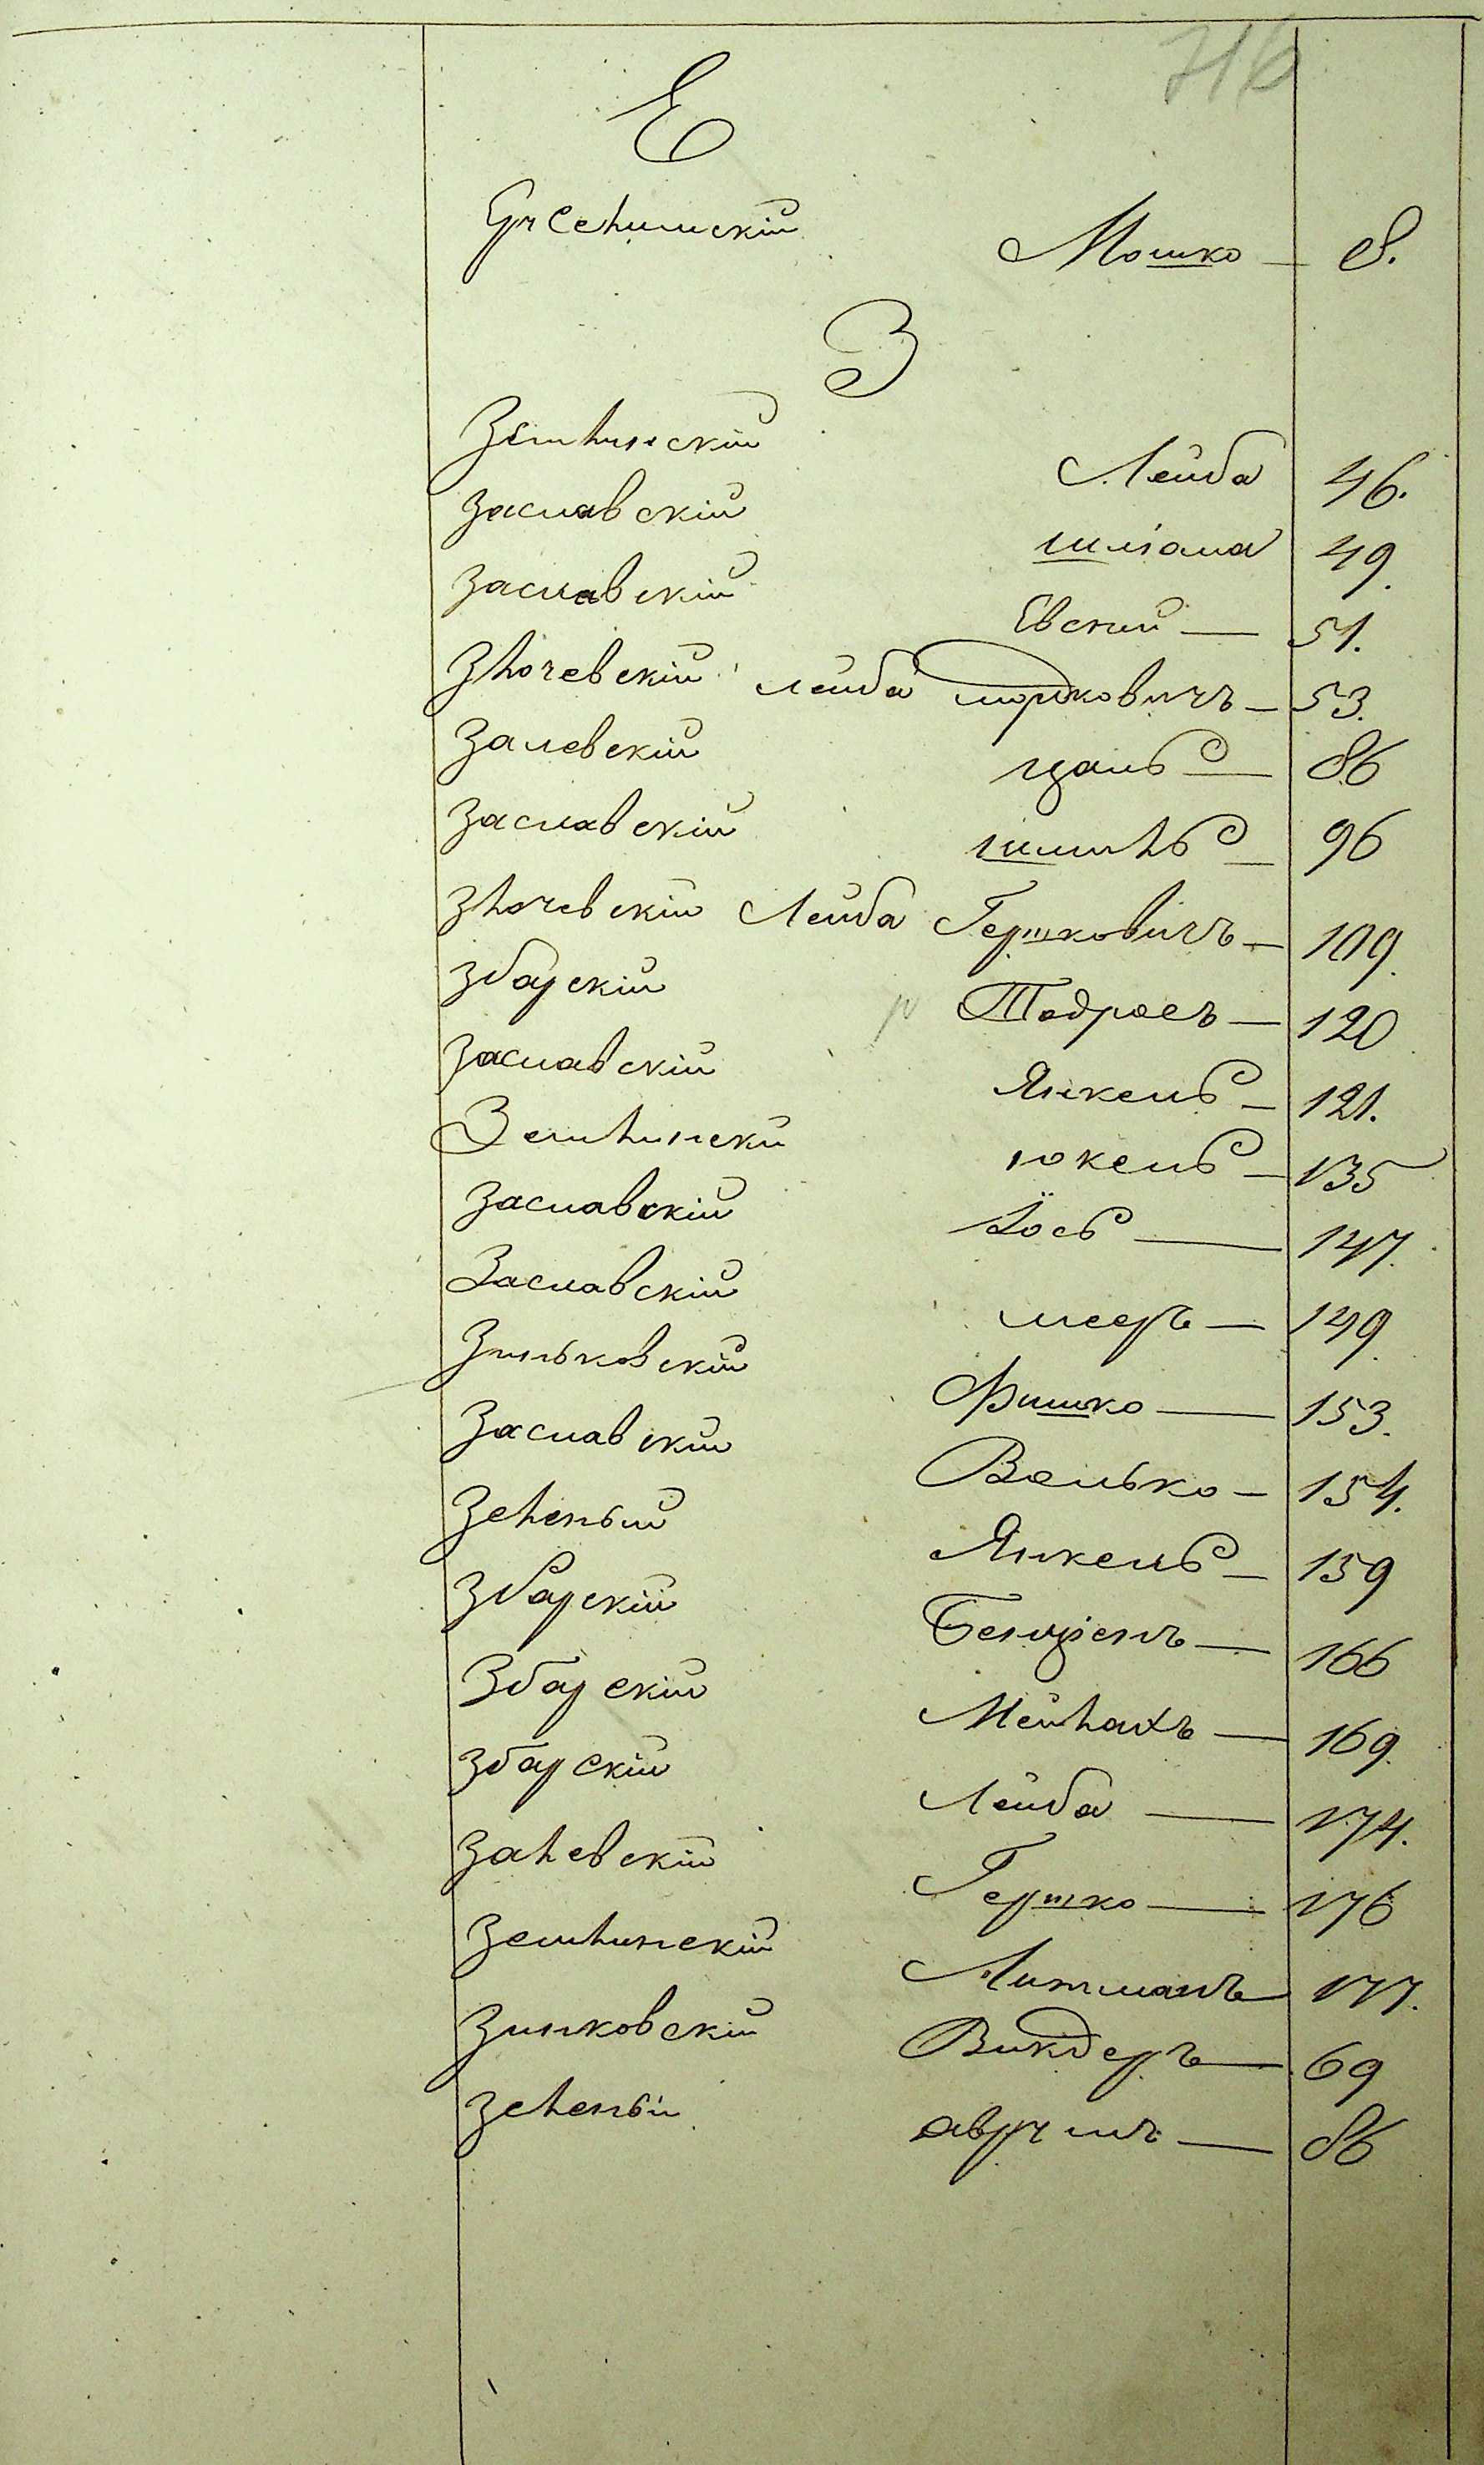 716
Е
Мошко — 8.
З
Землинскій Лейба 46.
Заславскій Шліома 49.
Заславскій Евсий — 51.
Злочевскій Лейба Мошковичъ — 53.
Залевскій Ицаль — 86
Заславскій Шмиль — 96
Злочевскій Лейба Гершковичъ — 109.
Збарскій Тодросъ — 120
Заславскій Янкель — 121.
Землински Юкель — 135
Заславскій Іось — 147.
Заславскій Мееръ — 149.
Зиньковскій Фишко — 153.
Заславскій Волько — 154.
Зеленый Янкель — 159
Збарскій Бенціенъ — 166
Збарскій Мейлахъ — 169.
Збарскій Лейба — 174.
Залевскій Гершко — 176
Землинскій Литманъ 177.
Зинковскій Викдеръ — 69
Зеленый Аврумъ — 86